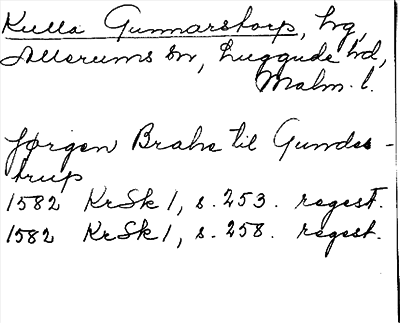 Kulla Gunnarstorp, hg,
Allerums sn, Luggude hd,
Malm. l.
Jørgen Brahe til Gundes-
trup
1582 KrSk 1, s. 253. regest.
1582 KrSk 1, s. 258. regest.